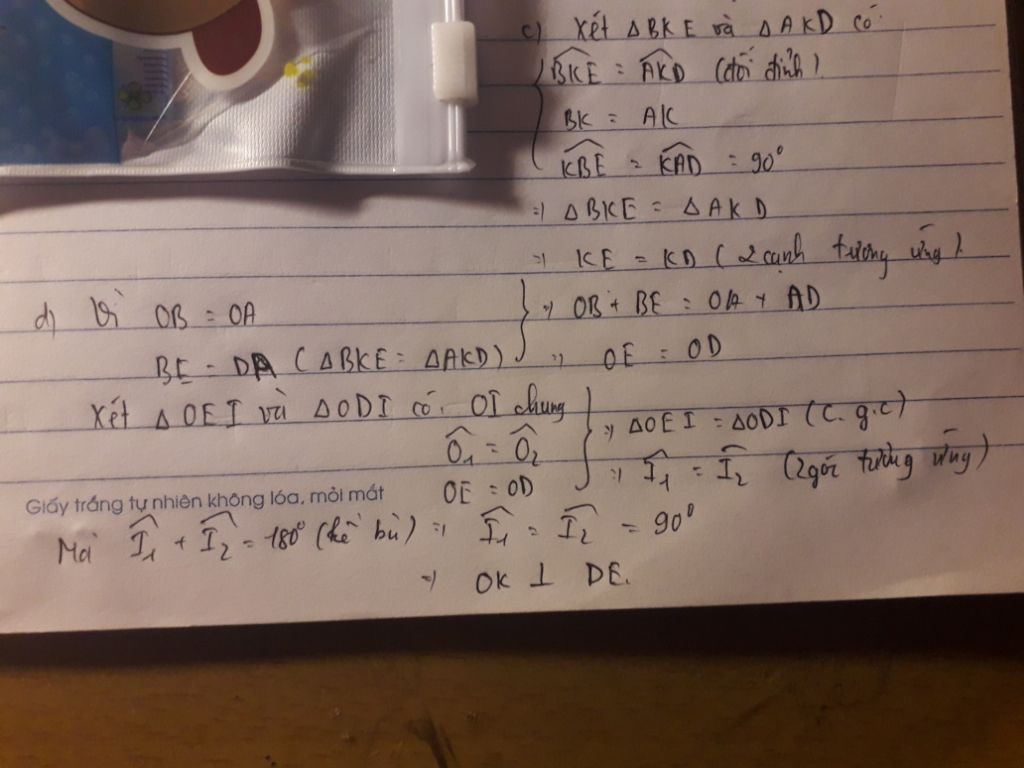 c) Xét ΔBKE và ΔAKD có:
{ \widehat{BKE} = \widehat{AKD} (đối đỉnh)
BK = AK
\widehat{KBE} = \widehat{KAD} = 90°
=> ΔBKE = ΔAKD
=> KE = KD (2 cạnh tương ứng)
d) Vì OB = OA } => OB + BE = OA + AD
BE = DA (ΔBKE = ΔAKD) => OE = OD
Xét ΔOEI và ΔODI có: OI chung
\widehat{O_1} = \widehat{O_2} } => ΔOEI = ΔODI (c.g.c)
OE = OD => \widehat{I_1} = \widehat{I_2} (2 góc tương ứng)
Giấy trắng tự nhiên không lóa, mỏi mắt
Mà \widehat{I_1} + \widehat{I_2} = 180° (kề bù) => \widehat{I_1} = \widehat{I_2} = 90°
=> OK ⊥ DE.